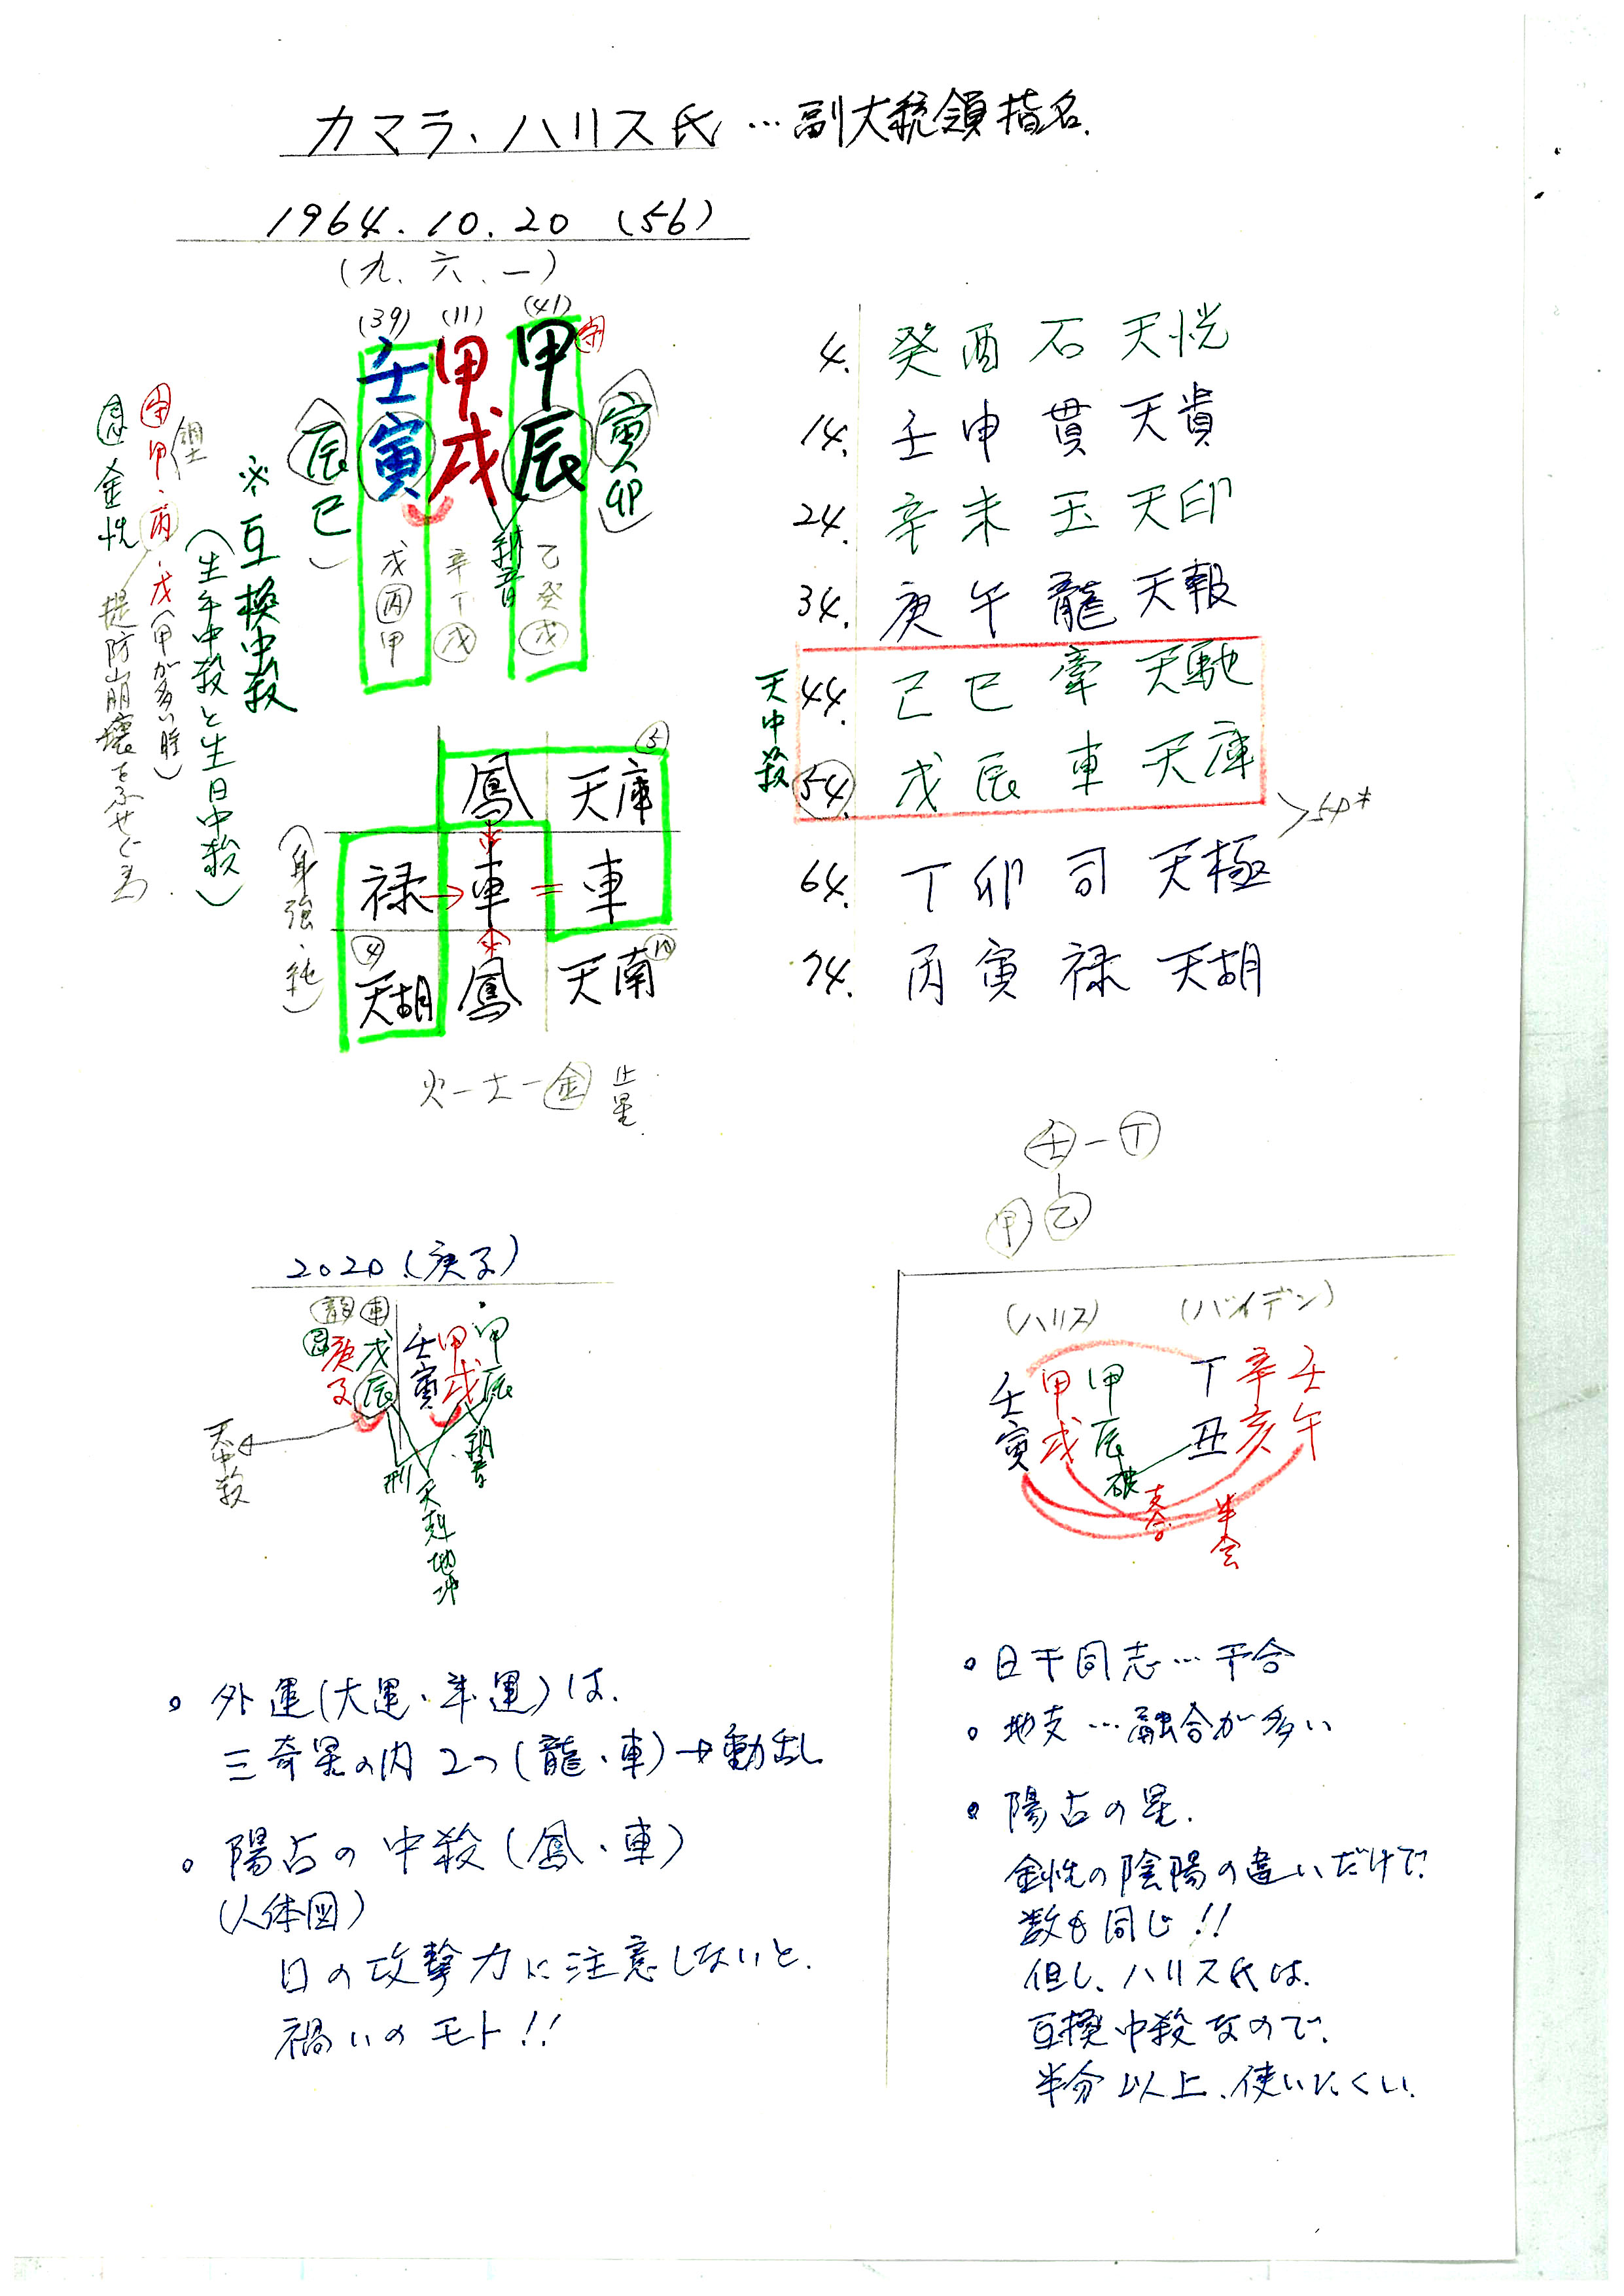 カマラ、ハリス氏…副大統領指名.
1964.10.20 (56)
(九、六、一)
(39) (11) (41)
壬 甲 甲 守
寅 戌 辰
(辰巳)
(寅卯)
納音
戊 辛 乙
丙 丁 癸
甲 戊 戊
※互換中殺
(生年中殺と生日中殺)
調
守 甲・丙・戊(甲が多い時)
忌 金性
堤防山崩壊をふせぐ為
4. 癸酉 石 天恍
14. 壬申 貫 天貴
24. 辛未 玉 天印
34. 庚午 龍 天報
44. 己巳 牽 天馳
54. 戊辰 車 天庫
天中殺
64. 丁卯 司 天極
74. 丙寅 禄 天胡
鳳 天庫 5
禄 → 車 = 車
天胡 4 鳳 天南 10
(身強・純)
火ー土ー金 止星
壬ー丁
甲 乙
2020.(庚子)
龍 車
忌 庚 戊 壬 甲 甲
子 辰 寅 戌 辰
天中殺
刑
天剋地冲
納音
(ハリス) (バイデン)
壬 甲 甲 丁 辛 壬
寅 戌 辰 丑 亥 午
破
支合
半会
。外運(大運、年運)は、
三奇星の内 2つ(龍・車)→動乱
。陽占の中殺(鳳・車)
(人体図)
口の攻撃力に注意しないと、
禍いのモト!!
。日干同志…干合
。地支…融合が多い
。陽占の星.
金性の陰陽の違いだけで、
数も同じ!!
但し、ハリス氏は、
互換中殺なので、
半分以上、使いにくい.